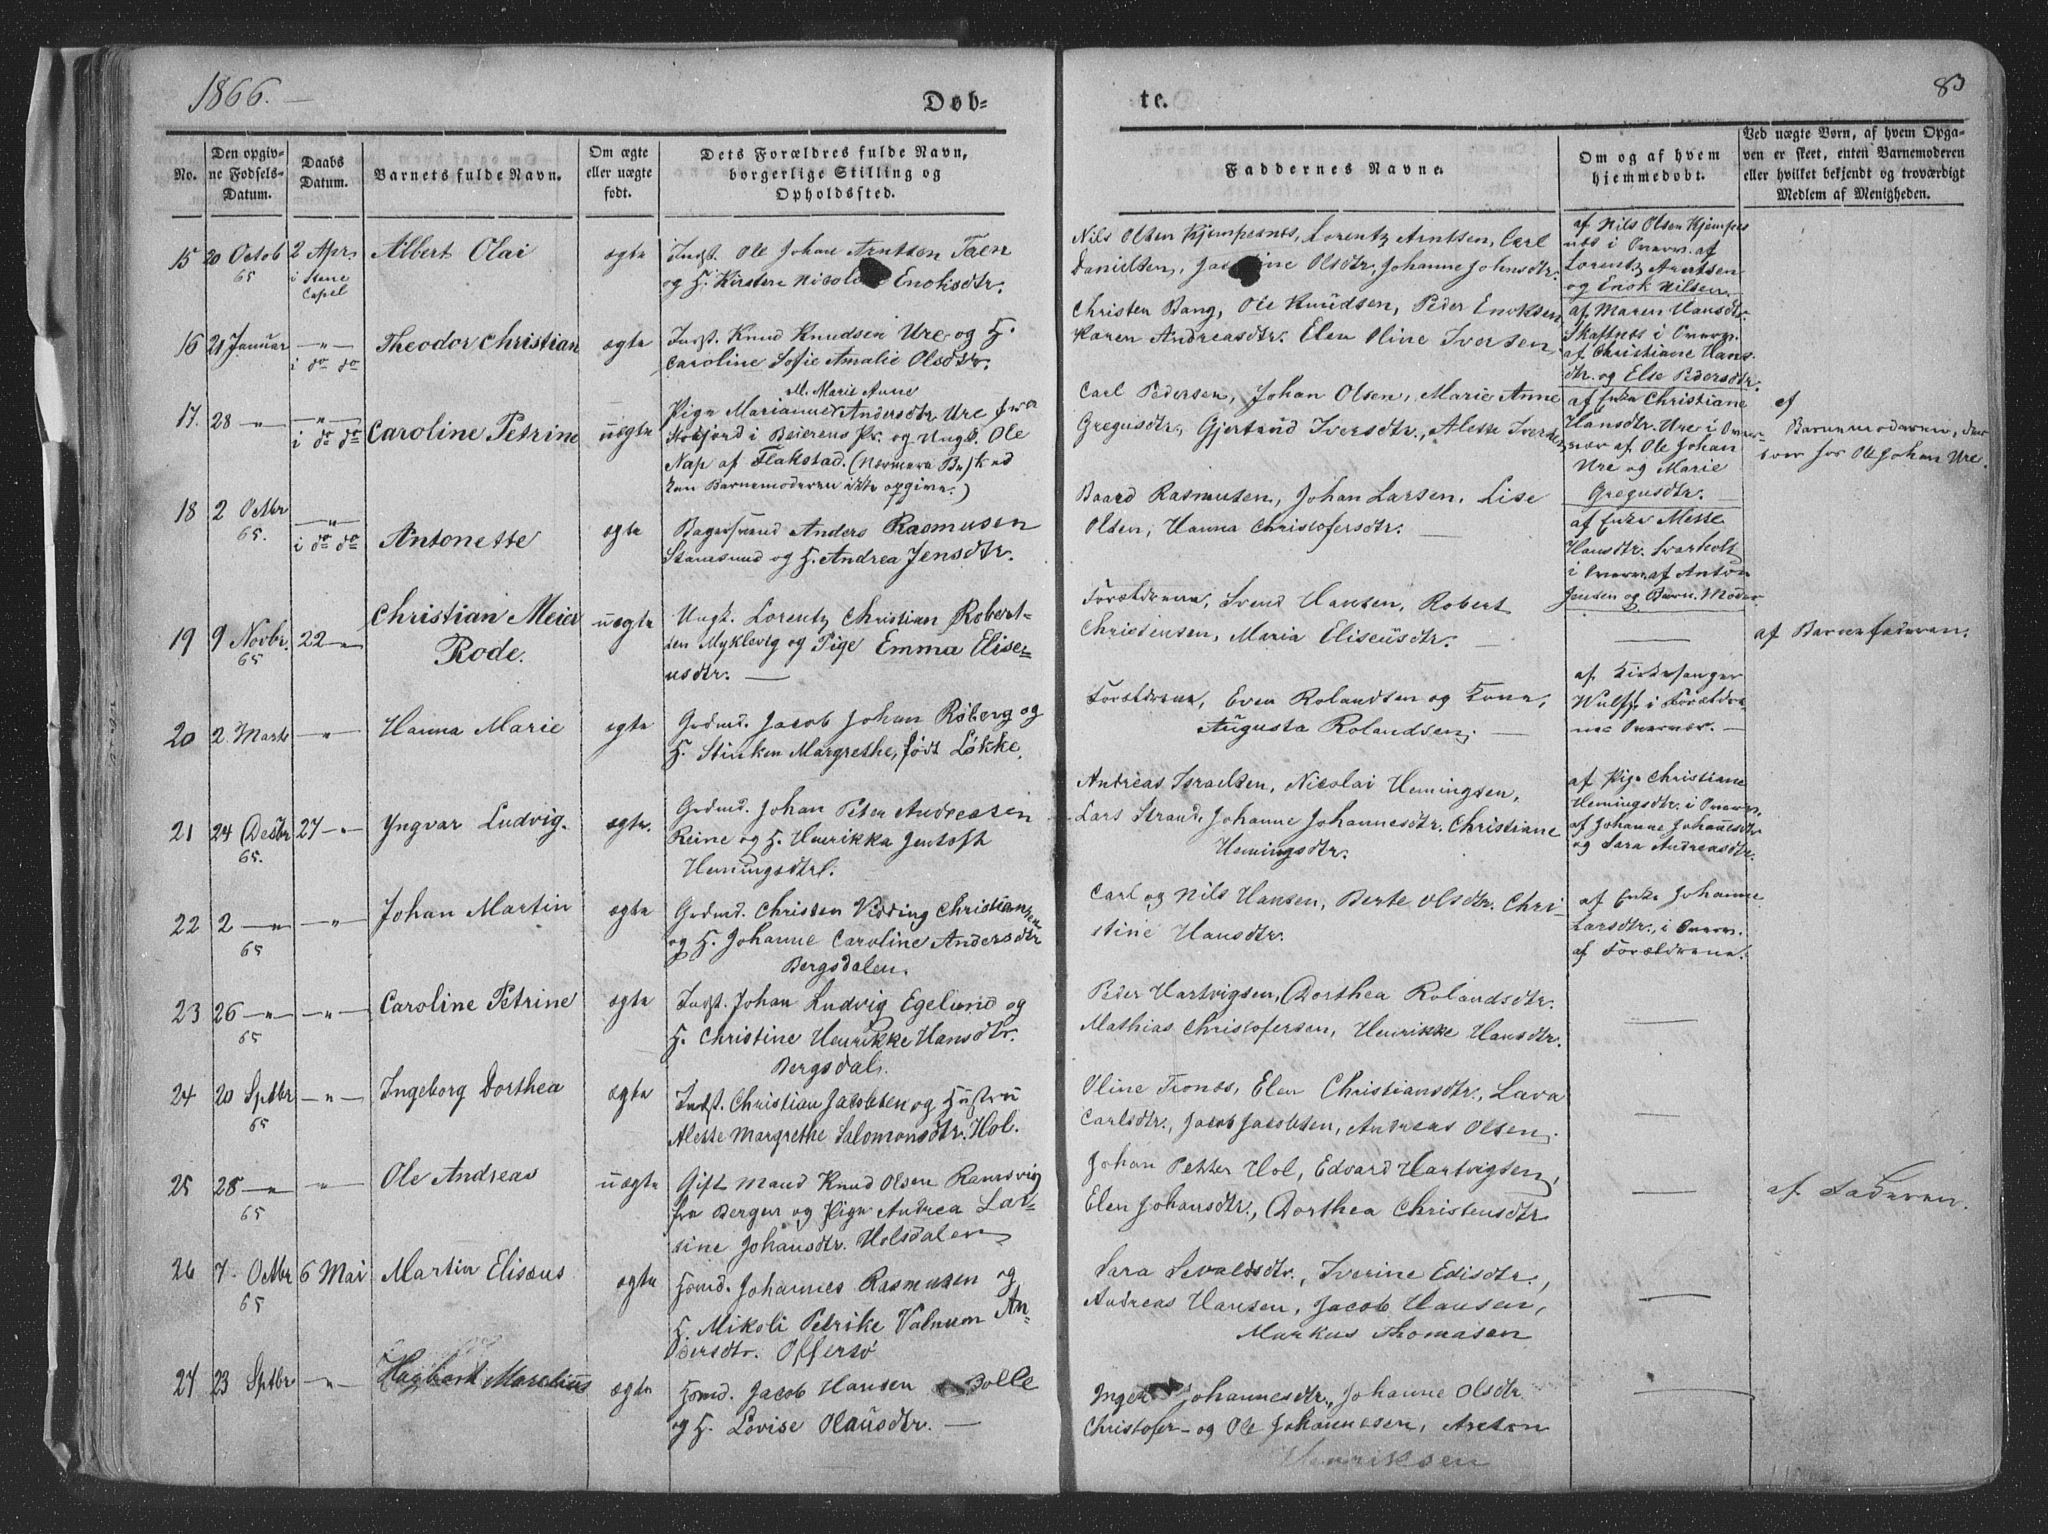 1866.
Døb-
te.
83
No.
Den opgiv-
ne Fødsels-
Datum.
Daabs
Datum.
Barnets fulde Navn.
Om ægte
eller uægte
født.
Dets Forældres fulde Navn,
borgerlige Stilling og
Opholdssted.
Faddernes Navne.
Om og af hvem
hjemmedøbt.
Ved uægte Børn, af hvem Opga-
ven er skeet, enten Barnemoderen
eller hvilket bekjendt og troværdigt
Medlem af Menigheden.
15
20 Octob
65
2 Apr.
i Stene
Capel
Albert Olai
ægte
Indst. Ole Johan Arntsen Toen
og H. Kirsten Nicoli Enoksdtr.
Nils Olsen Kjempenes, Lorentz Arntsen, Carl
Danielsen, Olsdtr, Johanne Johnsdtr.
af Nils Olsen Kjempe
næs i Overv. af
Lorentz Arntsen
og Enok Nilsen.
16
21 Januar
-"-
i do do
Theodor Christian
ægte
Indst. Knud Knudsen Ure og H.
Caroline Sofie Amalie Olsdtr.
Christen Bang, Ole Knudsen, Peder Enoksen
Karen Andreasdtr. Elen Oline Iversen.
af Maren Hansdtr.
Skaftnæs i Overv.
af Christiane Hans
dtr. og Else Pedersdtr.
17.
28 -"-
-"-
i do do
Caroline Petrine
uægte
Marie Anne
Pige Marianne Andersdtr. Ure fra
Stokfjord i Beierens Pr. og Ungk. Ole
Nap af Flakstad. (Nærmere Besked
kan Barnemoderen ikke opgive.)
Carl Pedersen, Johan Olsen, Marie Anne
Gregusdtr., Gjertrud Iversdtr., Alette Iversen,
af Enke Christiane
Hansdtr. Ure i Over-
vær af Ole Johan
Ure og Marie
Gregusdtr.
af
Barnemoderen,
for Ole Johan Ure.
18
2 Octbr
65.
-"-
i do do
Antonette
ægte
Bagersvend Anders Rasmusen
Stamsund og H. Andrea Jensdtr.
Baard Rasmusen, Johan Larsen, Lise
Olsen, Hanna Christofersdtr.
af Enke Mette
Hansdtr. Svarholt
i Overv. af Anton
Jensen og Barn. Moder
19
9 Novbr.
65
22 -"-
Christian Meier
Rode.
uægte
Ungk. Lorentz Christian Robert-
sen Myklevig og Pige Emma Elise-
usdtr.
Forældrene, Svend Hansen, Robert
Christensen, Maria Eliseusdtr.
af Barnefaderen.
20
2. Marts
-"-
Hanna Marie
ægte
Grdmd. Jacob Johan Røberg og
H. Stinken Margrethe, født Løkke.
Forældrene, Even Rolandsen og Kone,
Augusta Rolandsen.
af Kirkesanger
Wulff i Forældre-
nes Overvær.
21
24 Desbr
65.
27 -"-
Yngvar Ludvig.
ægte.
Grdmd. Johan Peter Andreasen
Reine og H. Henrikka Jentoft
Hemingsdtr.
Andreas Israelsen, Nicolai Hemingsen,
Lars Strand, Johanne Johannesdtr. Christiane
Hemingsdtr.
af Pige Christiane
Hemingsdtr. i Overv.
af Johanne Johannesdtr
og Sara Andreasdtr.
22
2 -"-
65
-"-
Johan Martin
ægte
Grdmd. Christen Vidding Christiansen
og H. Johanne Caroline Andersdtr
Bergsdalen.
Carl og Nils Hansen, Berte Olsdtr. Chri-
stine Hansdtr.
af Enke Johanne
Larsdtr., i Overv.
af Forældrene.
23
26 -"-
65
-"-
Caroline Petrine
ægte
Indst. Johan Ludvig Egelund og
H. Christine Henrikke Hansdtr.
Bergsdal.
Peder Hartvigsen, Dorthea Rolandsdtr.
Mathias Christofersen, Henrikke Hansdtr.
24
20 Sptbr
65
-"-
Ingeborg Dorthea
ægte
Indst. Christian Jacobsen og Hustru
Alette Margrethe Salomonsdtr. Hol.
Oline Tronæs, Elen Christiansdtr., Lava
Carlsdtr., Jacob Jacobsen, Andreas Olsen.
25
28 -"-
65
-"-
Ole Andreas
uægte
Gift Mand Knud Olsen Ramsvig
fra Bergen og Pige Andrea Lar-
sine Johansdtr. Holsdalen
Johan Petter Hol, Edvard Hartvigsen,
Elen Johansdtr., Dorthea Christensdtr
af Faderen.
26
7. Octbr
65
6 Mai
Martin Elisæus
ægte
Husmd. Johannes Rasmusen og
H. Mikoli Petrike Valnum An-
dersdtr. Offersø
Sara Sevaldsdtr., Iverine Edisdtr.,
Andreas Hansen, Jacob Hansen,
Markus Thomasen
27
23 Sptbr
-"-
Hagbart Marelius
ægte
Husmd. Jacob Hansen Bolle
og H. Lovise Olausdtr.
Inger Johannesdtr., Johanne Olsdtr.
Christofer og Ole Johannesen, Areton
Henriksen